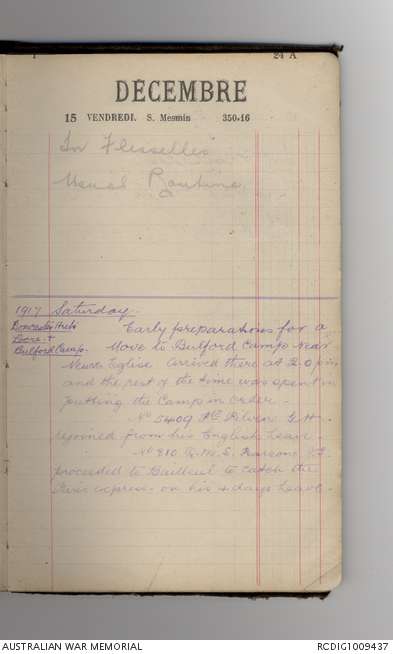 24 A
DÉCEMBRE
15 VENDREDI. S. Mesmin 350-16
In Flesselles
Usual Routine
1917 Saturday.
Doncaster Huts
Locre +
Bulford Camp.
Early preparations for a
Move to Bulford Camp near
Neuve Eglise arrived there at 2.0 pm
and the rest of the time was spent in
putting the Camp in order.
No 5409 Pte G.H.
rejoined from his English Leave.
No 810 Q.M.S. Parsons
proceeded to Bailleul to catch the
Paris express on his 4 days Leave.
AUSTRALIAN WAR MEMORIAL RCDIG1009437